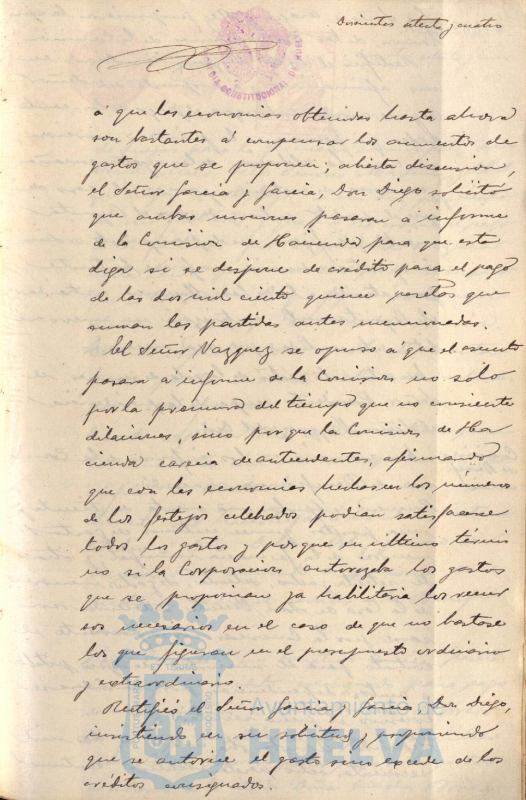 Doscientos ochenta y cuatro
CONSTITUCIONAL DE HUELVA
á que las economias obtenidas hasta ahora
son bastantes á compensar los aumentos de
gastos que se proponen; abierta discusion,
el Señor Garcia y Garcia, Don Diego solicitó
que ambas mociones pasaran á informe
de la Comision de Hacienda para que esta
diga si se dispone de crédito para el pago
de las dos mil ciento quince pesetas que
suman las partidas antes mencionadas.
El Señor Vazquez se opuso á que el asunto
pasara á informe de la Comision no solo
por la premura del tiempo que no consiente
dilaciones, sino porque la Comision de Ha
cienda carecia de antecedentes, afirmando
que con las economias hechas en los números
de los festejos celebrados podian satisfacerse
todos los gastos y porque en último término
si la Corporacion autorizaba los gastos
que se proponian ya habilitaria los recur
sos necesarios en el caso de que no bastase
los que figuran en el presupuesto ordinario
y extraordinario.
Rectificó el Señor Garcia y Garcia, Don Diego,
insistiendo en su solicitud y proponiendo
que se autorice el gasto sino excede de los
créditos consignados.
Ayuntamiento de
HUELVA